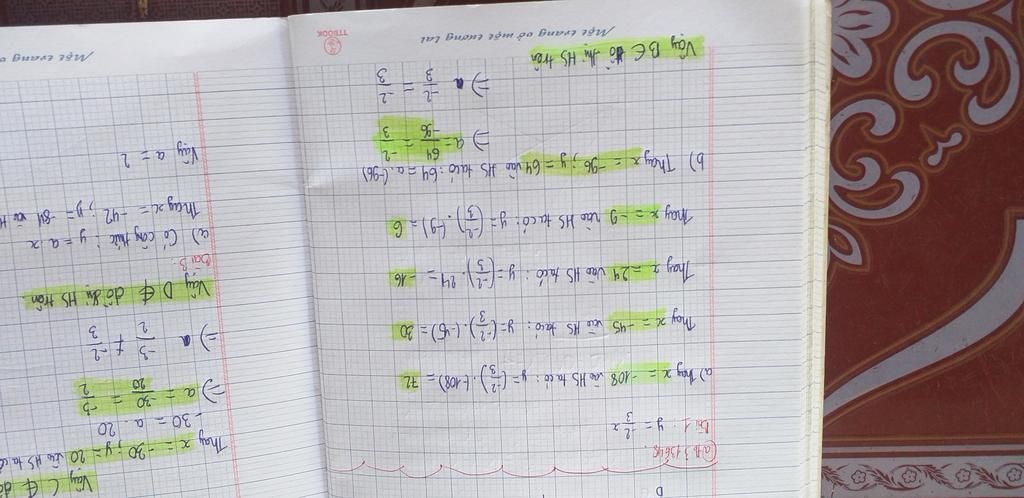 Bài 1 y = -2/3 x
a) Thay x = -108 vào HS ta có: y = (-2/3).(-108) = 72
Thay x = -45 vào HS ta có: y = (-2/3).(-45) = 30
Thay x = 24 vào HS ta có: y = (-2/3). 24 = -16
Thay x = -9 vào HS ta có: y = (-2/3).(-9) = 6
b) Thay x = -96; y = 64 vào HS ta có: 64 = a.(-96)
=> a = 64/-96 = -2/3
=> -2/3 = -2/3
Vậy B ∈ đồ thị HS trên
Một trang vở một tương lai
TTBOOK
Vậy C ∉ đồ
Thay x = -30; y = 20 vào HS ta có
-30 = a . 20
=> a = -30/20 = -3/2
=> -3/2 ≠ -2/3
Vậy D ∉ đồ thị HS trên
Bài 3:
a) Có công thức: y = a x
Thay x = -42; y = -84 vào H
Vậy a = 2
Một trang v